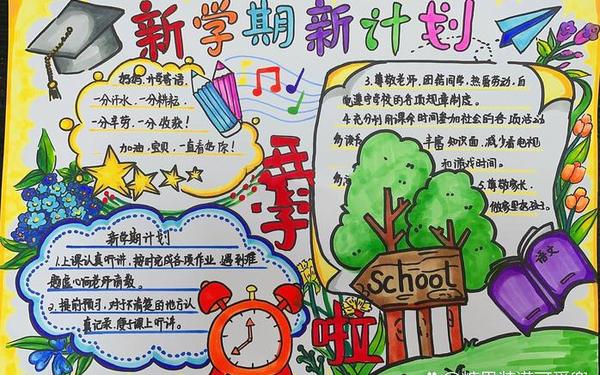 新学期新计划
妈妈，开学寄语
一分汗水，一分耕耘
一分辛劳，一分收获！
加油，宝贝，一直看好你！
开学
啦
新学期计划
1.上课认真听讲，按时完成各项作业，遇到难
题虚心向老师请教。
2、提前预习，对于不清楚的地方认
真记录，便于课上听讲。
3.尊敬老师，团结同学，热爱劳动，自
觉遵守学校的各项规章制度。
4.充分利用课余时间参加社会的各项活动
丰富知识面，减少看电视
和游戏时间。
5.尊敬家长，
School
语文